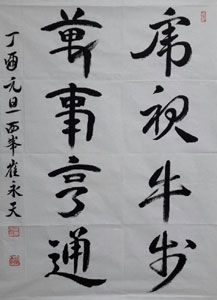 虎視牛步
萬事亨通
丁酉元旦西峯崔永天